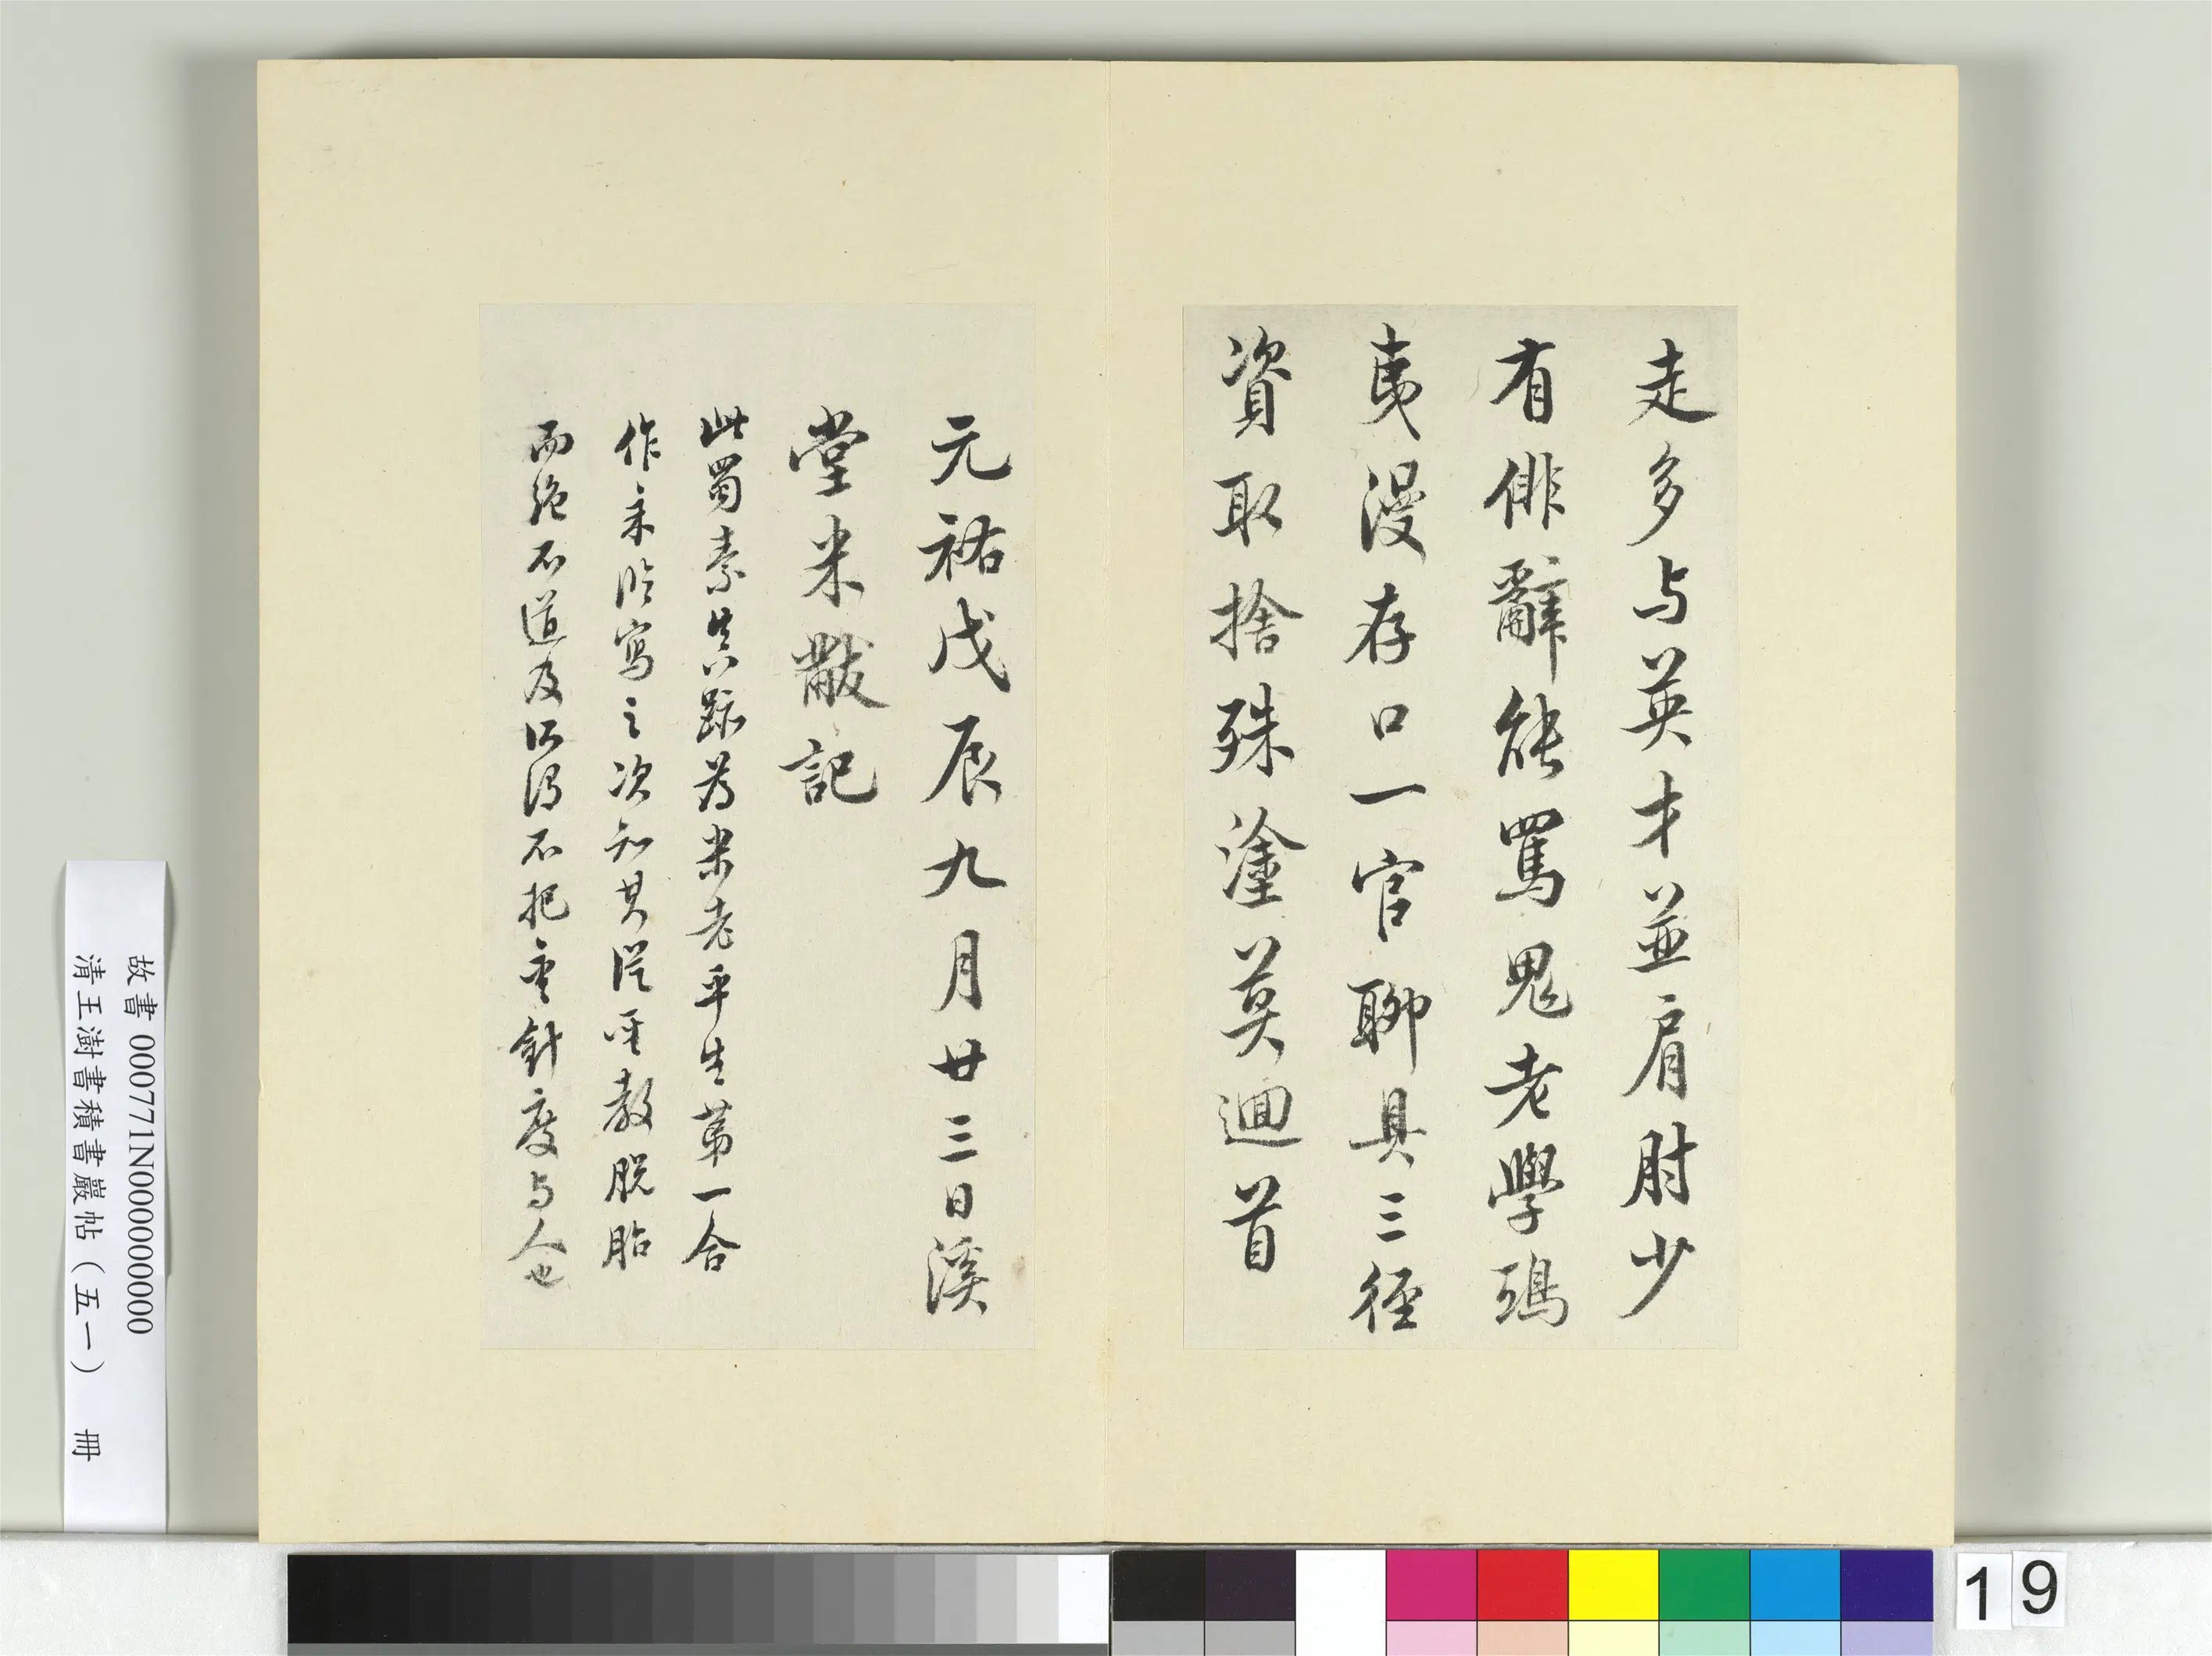 走多与英才並肩肘少
有俳辭能罵鬼老學鴟
夷漫存口一官聊具三徑
資取捨殊塗莫迴首
元祐戊辰九月廿三日溪
堂米黻記
此蜀素真跡為米老平生第一合
作來臨寫之次知其從座教脫胎
而絕不道及江湖不把金針度与人也
故書 000771N000000000
清王澍書積書巖帖（五一） 冊
19